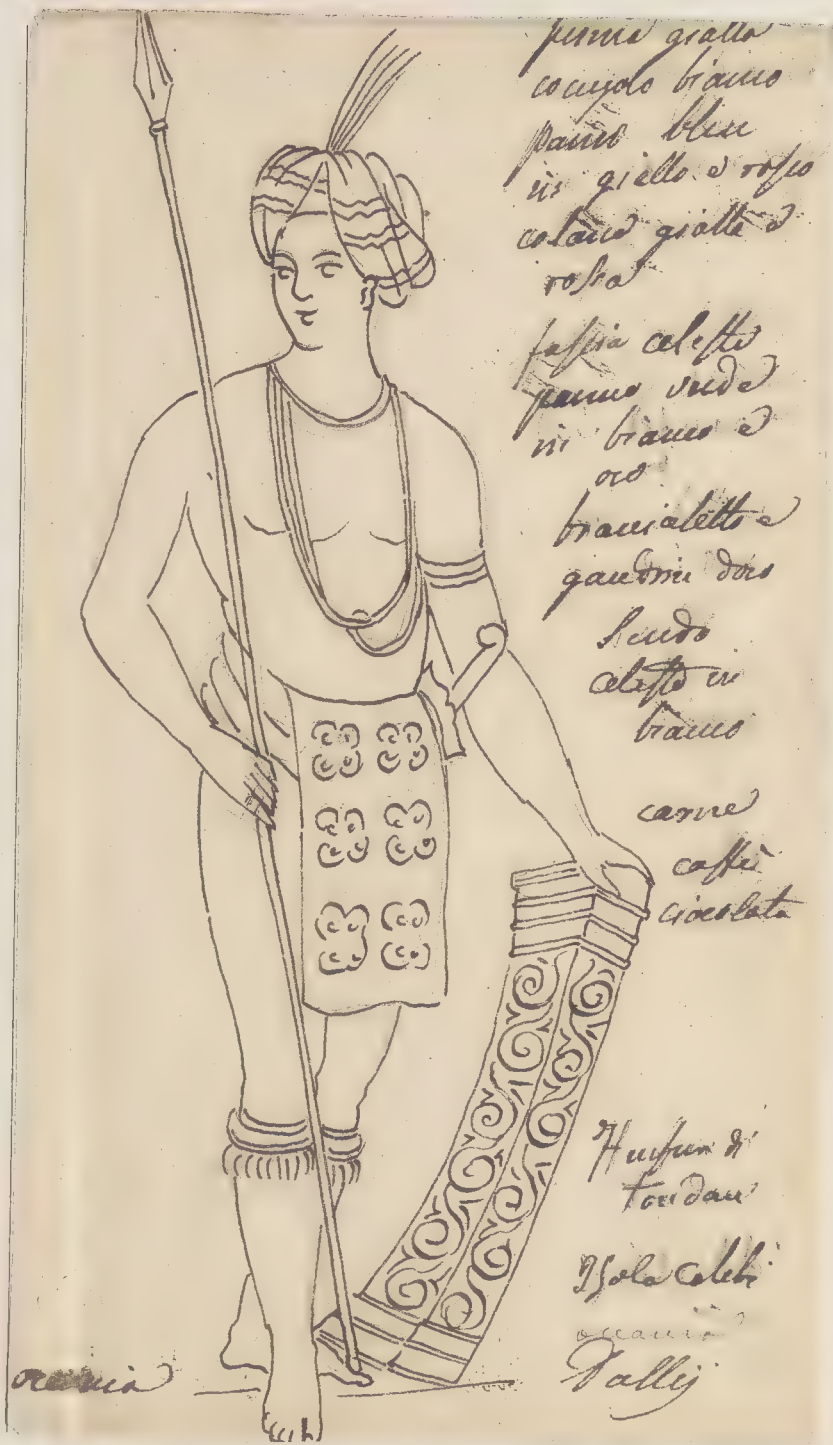 piuma gialla
coccyolo bianco
panno bleu
in giallo e rosso
colana gialla e
rossa
fascia celeste
panno verde
in bianco e
oro
braccialetto e
d'oro
scudo
celeste in
bianco
carne
caffè
cioccolata
di
Tondan
Isola Celebi
oceania
oceania